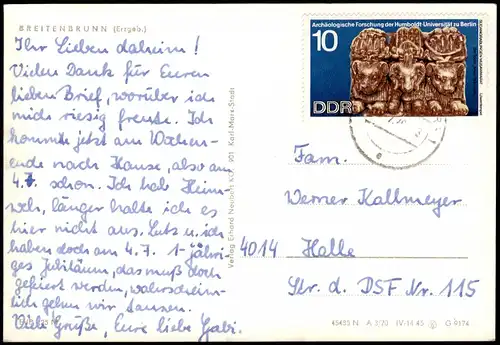 BREITENBRUNN (Erzgeb.)
Ihr Lieben daheim!
Vielen Dank für Euren
lieben Brief, worüber ich
mich riesig freute. Ich
komme jetzt am Wochen-
ende nach Hause, also am
4.7. schon. Ich hab Heim-
weh, länger halte ich es
hier nicht aus. Lutz u. ich
haben doch am 4.7. 1-jähri-
ges Jubiläum, das muß doch
gefeiert werden, wahrschein-
lich gehen wir tanzen.
Viele Grüße, Eure liebe Gabi.
Verlag Erhard Neubert KG, 901 Karl-Marx-Stadt
Archäologische Forschung der Humboldt-Universität zu Berlin
10
DDR
Fam.
Werner Kallmeyer
4014 Halle
Str. d. DSF Nr. 115
45453 N A 3/70 IV-14-45 G 9174